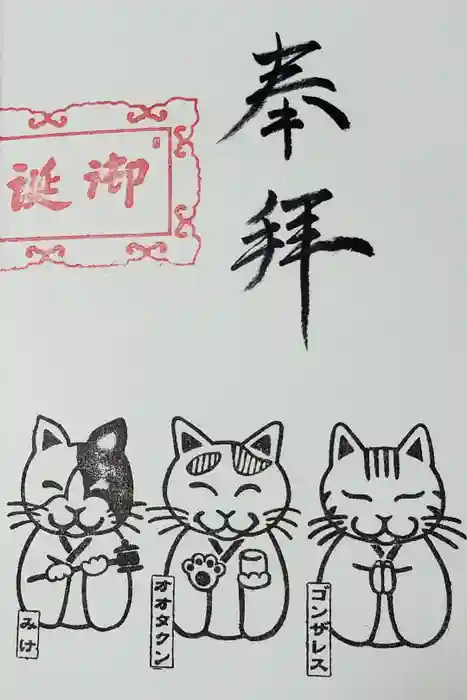 奉拝
御誕
みけ
オオタクン
ゴンザレス